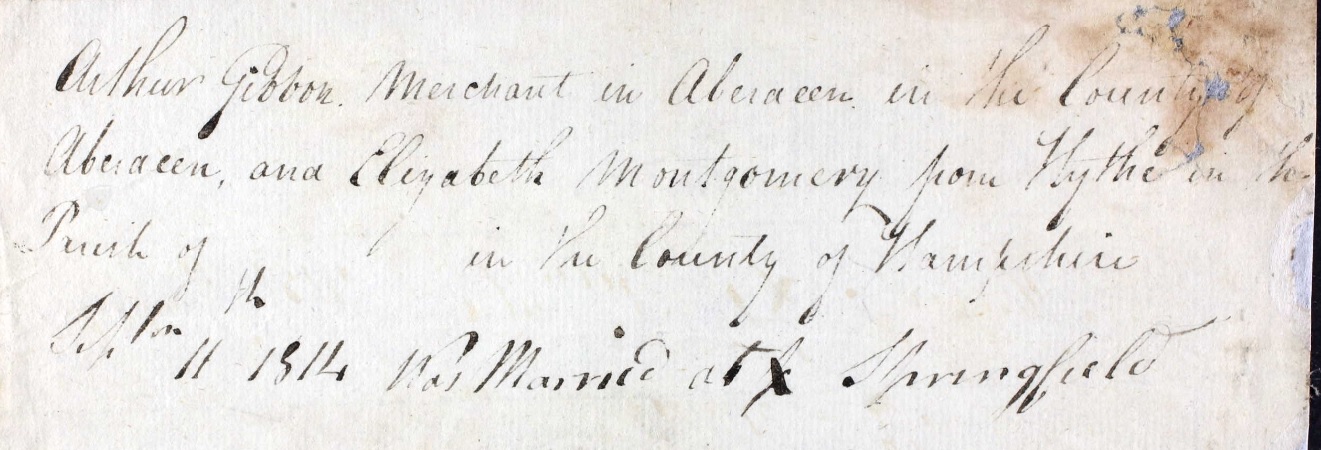 Arthur Gibbon. Merchant in Aberdeen in the County of
Aberdeen, and Elizabeth Montgomery from Hythe in the
Parish of in the County of Hampshire
Septbr 11th 1814 Was Married at Springfield